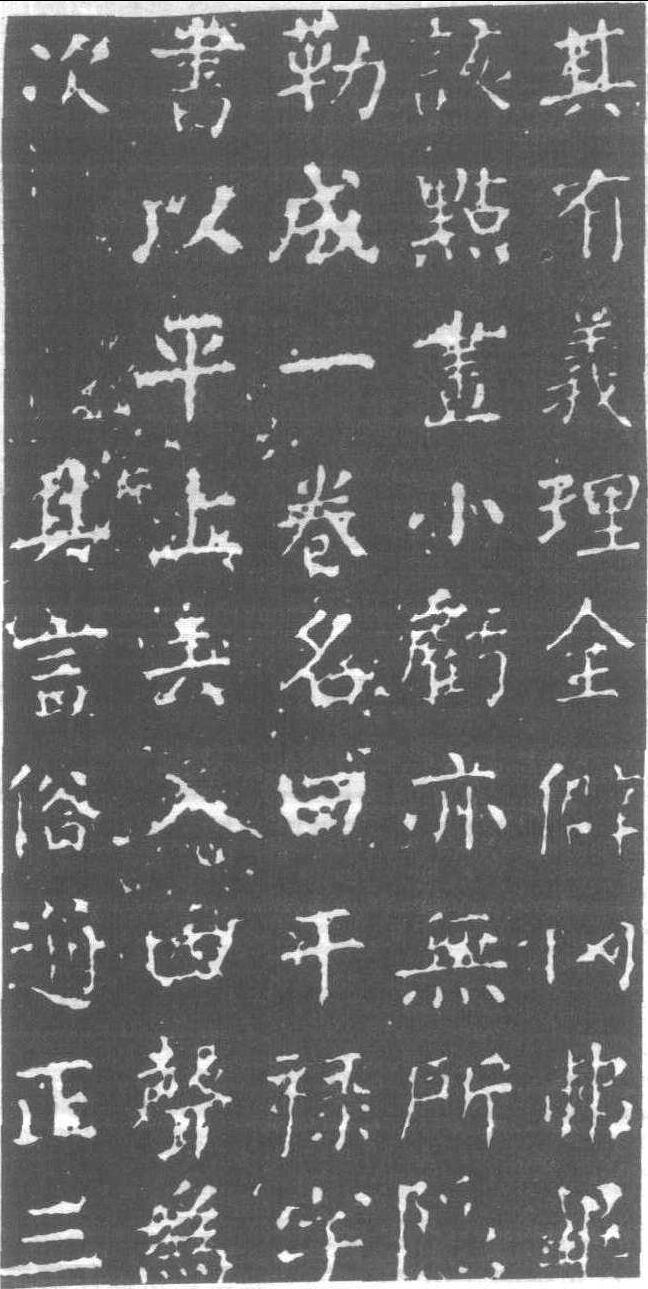 其有義理全僻罔弗畢
該點畫小虧亦無所隱
勒成一卷名曰干祿字
書以平上去入四聲爲
次具言俗通正三